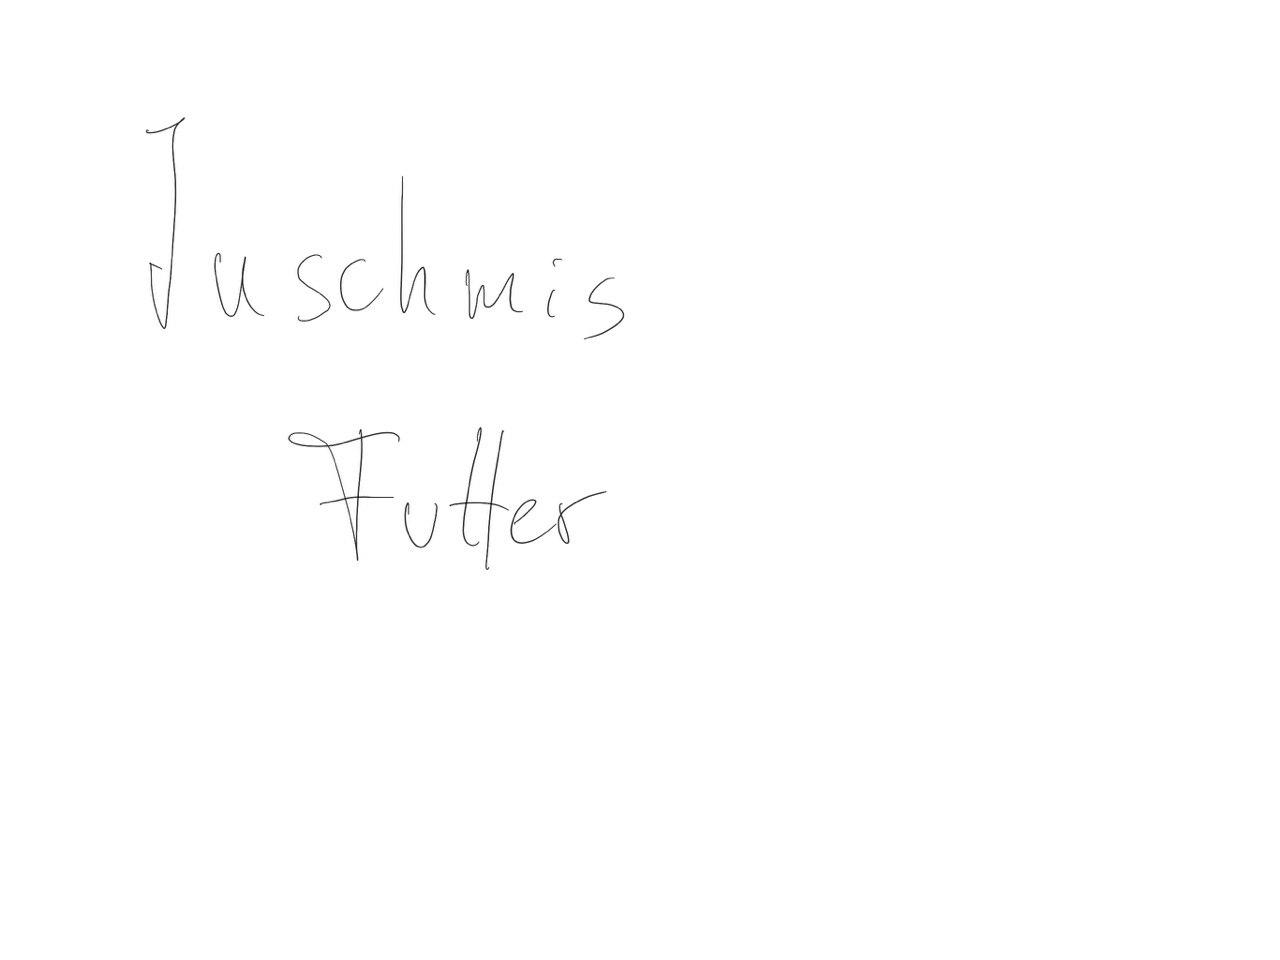 Juschmis
Futter